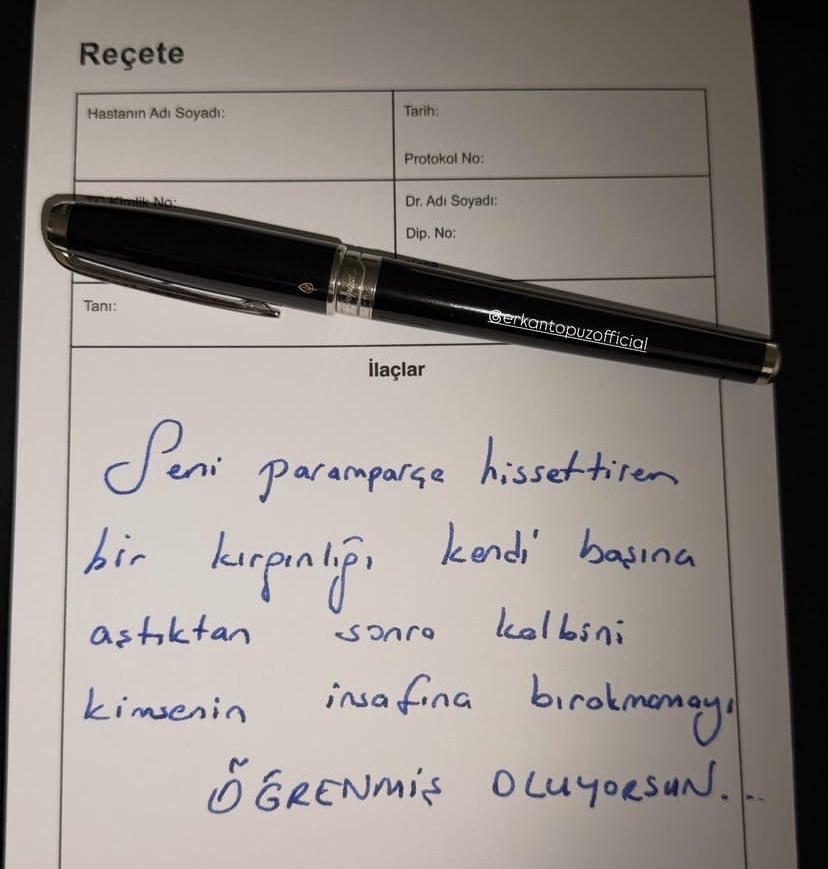 Reçete
Hastanın Adı Soyadı:
Tarih:
Protokol No:
TC Kimlik No:
Dr. Adı Soyadı:
Dip. No:
@erkantopuzofficial
Tanı:
İlaçlar
Seni paramparça hissettiren
bir kırgınlığı kendi başına
aştıktan sonra kalbini
kimsenin insafına bırakmamayı
ÖĞRENMİŞ OLUYORSUN...